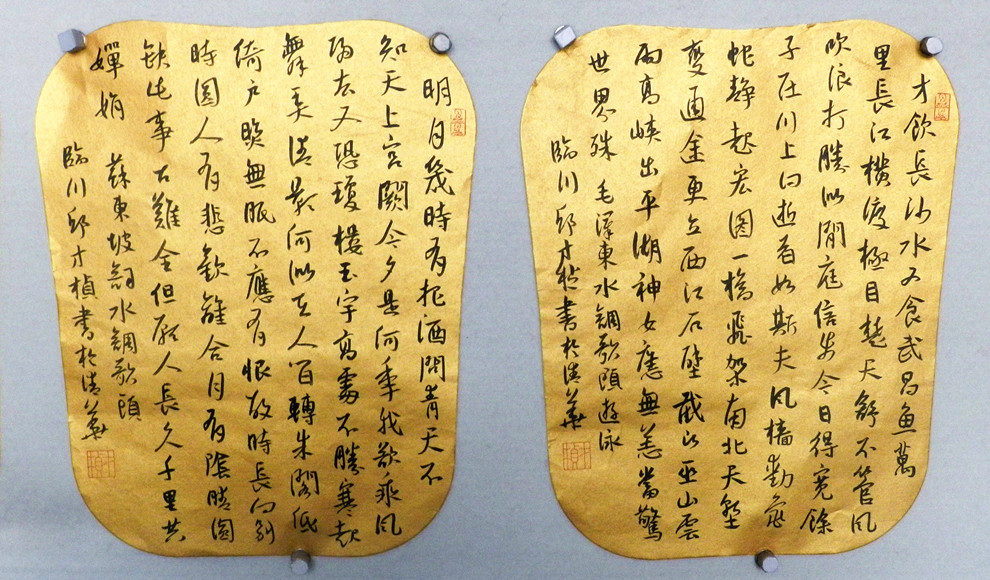 才飲長沙水又食武昌魚萬
里長江橫渡極目楚天舒不管風
吹浪打勝似閒庭信步今日得寬餘
子在川上曰逝者如斯夫風檣動龜
蛇靜起宏圖一橋飛架南北天塹
變通途更立西江石壁截斷巫山雲
雨高峽出平湖神女應無恙當驚
世界殊 毛澤東水調歌頭遊泳
臨川邱才楨書於清華
明月幾時有把酒問青天不
知天上宮闕今夕是何年我欲乘風
歸去又恐瓊樓玉宇高處不勝寒起
舞弄清影何似在人間轉朱閣低
倚戶照無眠不應有恨故時長向別
時圓人有悲歡離合月有陰晴圓
缺此事古難全但願人長久千里共
嬋娟 蘇東坡詞水調歌頭
臨川邱才楨書於清華